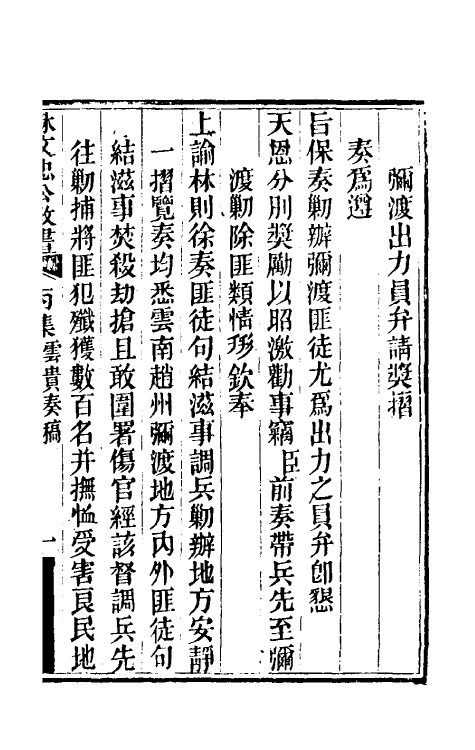 彌渡出力員弁請奬摺
奏爲遵
旨保奏勦辦彌渡匪徒尤爲出力之員弁卽懇
天恩分別奬勵以昭激勸事竊臣前奏帶兵先至彌
渡勦除匪類情形欽奉
上諭林則徐奏匪徒句結滋事調兵勦辦地方安靜
一摺覽奏均悉雲南趙州彌渡地方內外匪徒句
結滋事焚殺劫搶且敢圍署傷官經該督調兵先
往勦捕將匪犯殲獲數百名幷撫恤受害良民地
林文忠公政書 丙集雲貴奏稿 一